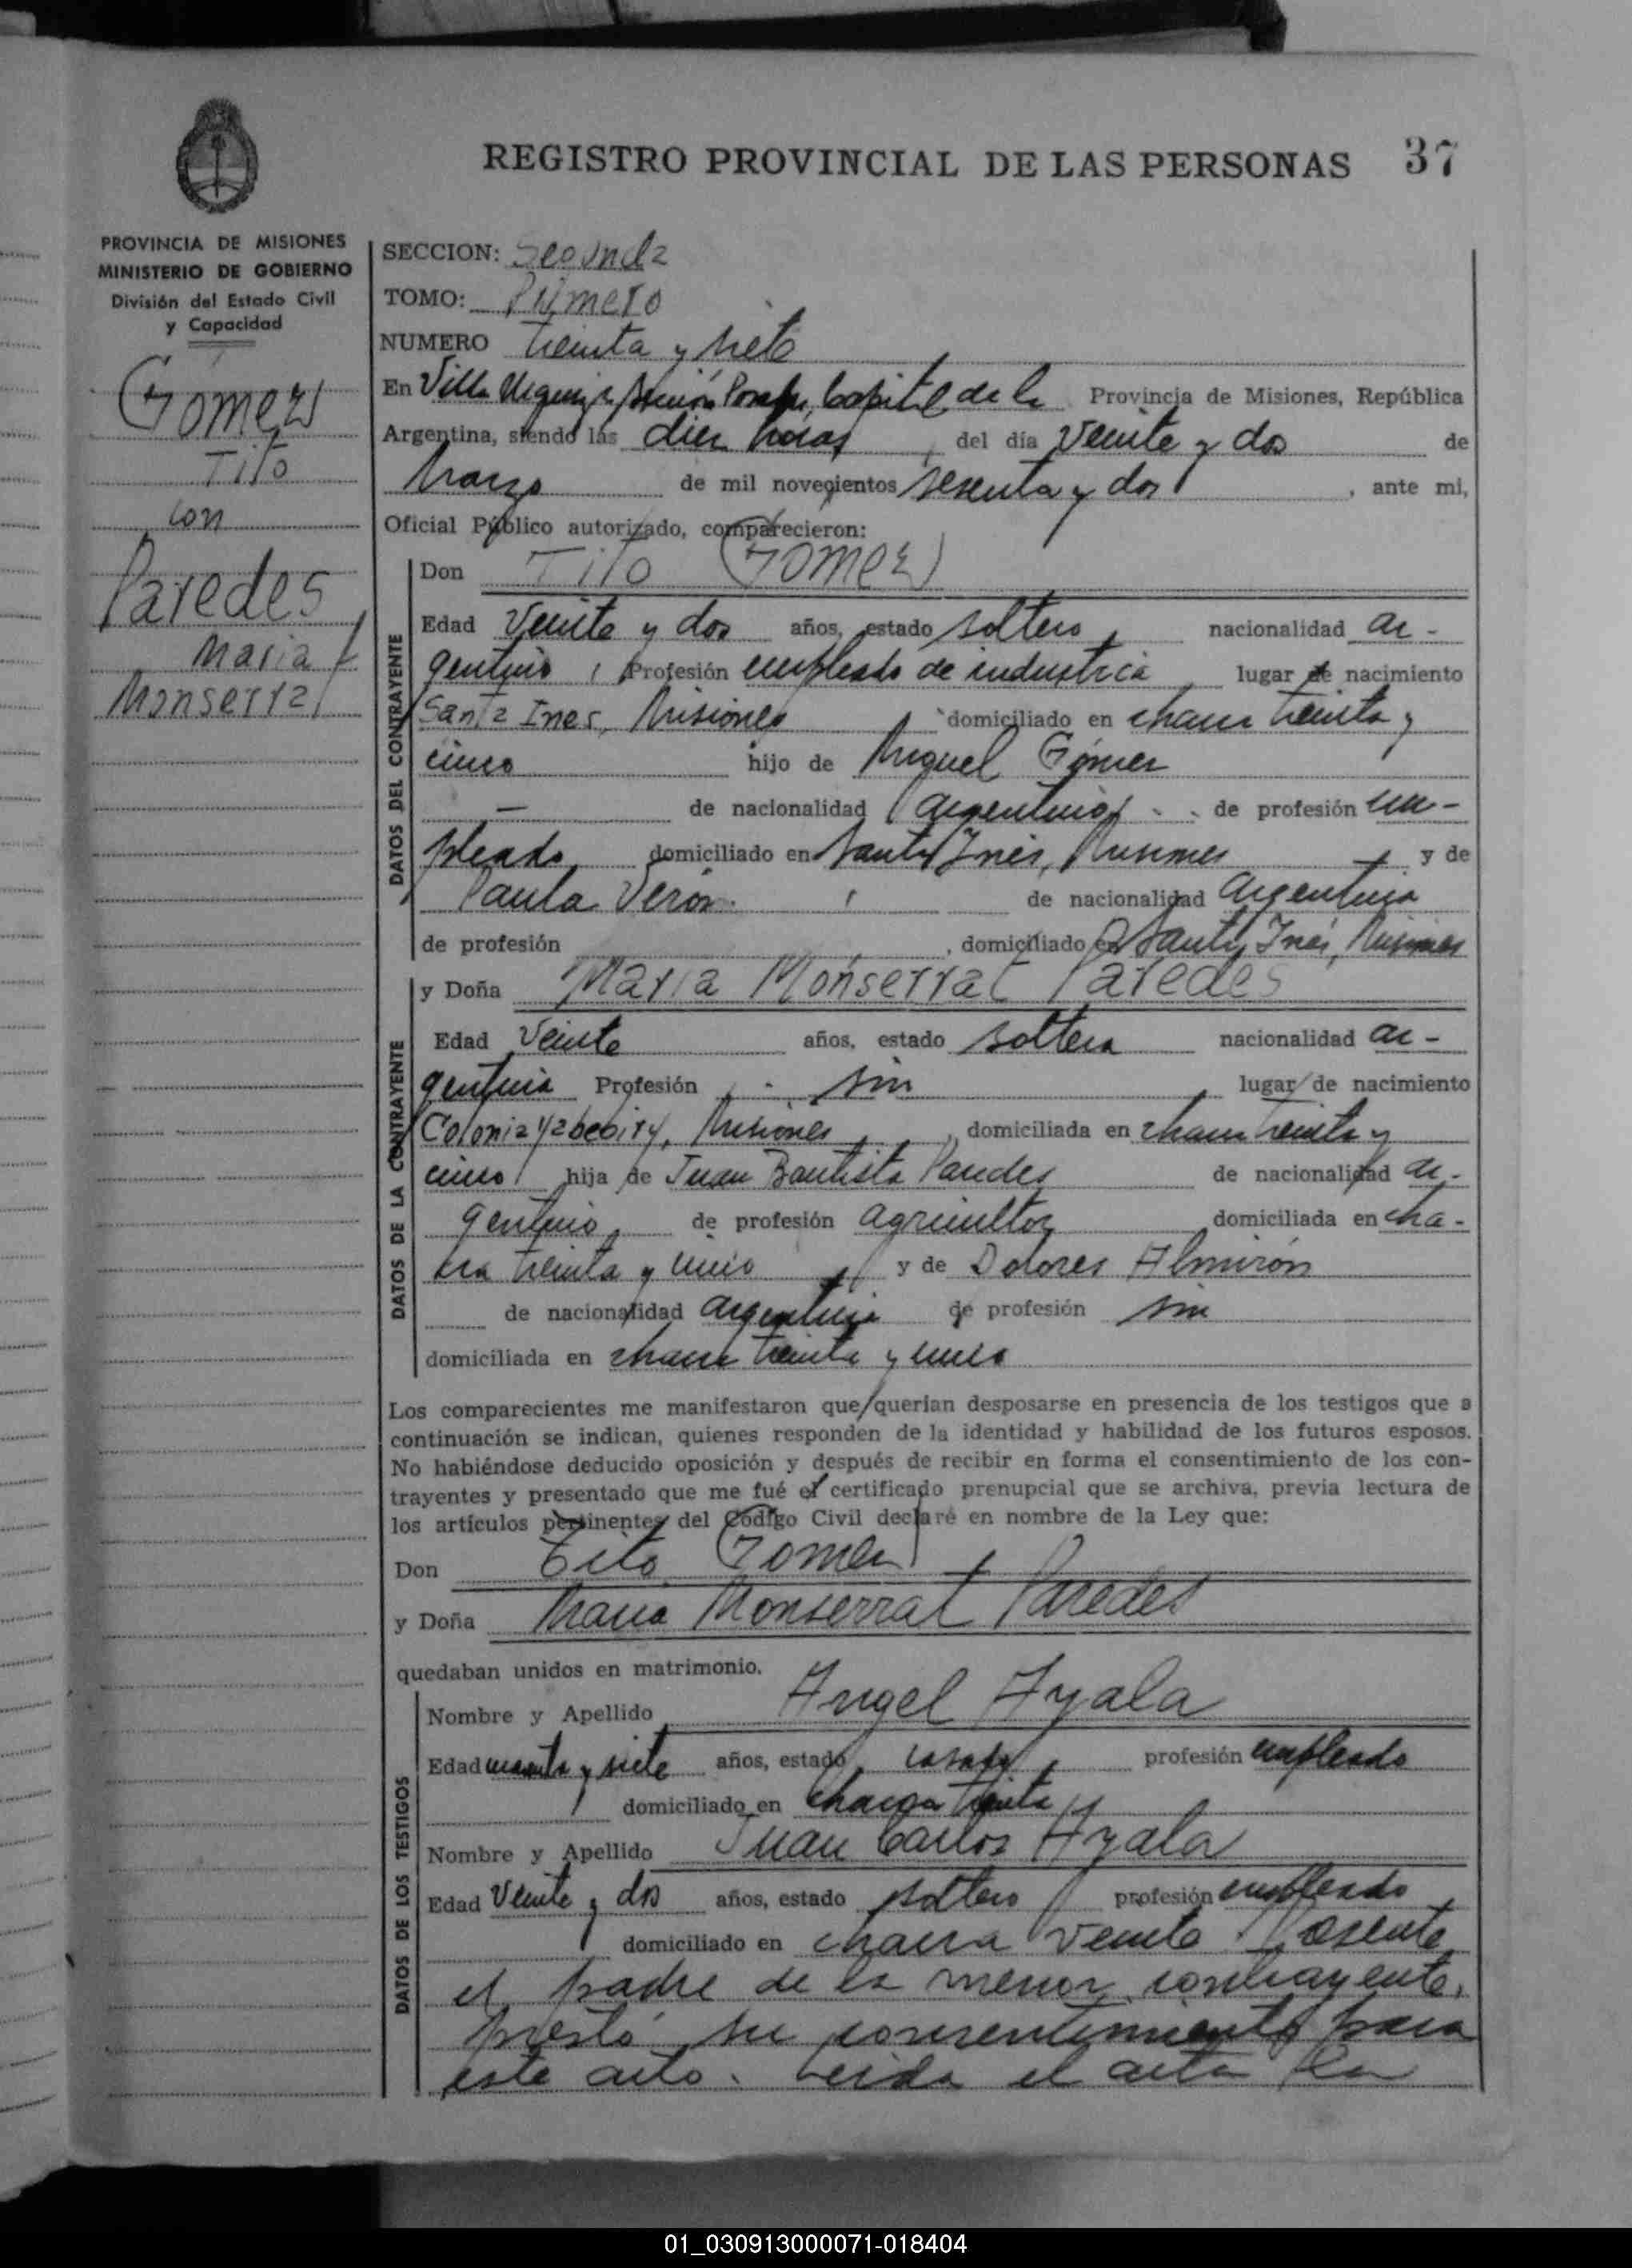 REGISTRO PROVINCIAL DE LAS PERSONAS 37
PROVINCIA DE MISIONES
MINISTERIO DE GOBIERNO
División del Estado Civil
y Capacidad
Gómez
Tito
con
Paredes
Maria
Monserrat
SECCION: Segunda
TOMO: Primero
NUMERO treinta y siete
En Villa Urquiza, Sección Posadas, Capital de la Provincia de Misiones, República
Argentina, siendo las diez horas, del día veinte y dos de
Marzo de mil novecientos sesenta y dos, ante mi,
Oficial Público autorizado, comparecieron:
DATOS DEL CONTRAYENTE
Don Tito Gómez
Edad veinte y dos años, estado soltero, nacionalidad ar-
gentino, Profesión empleado de industria, lugar de nacimiento
Santa Ines, Misiones, domiciliado en chacra treinta y
cinco hijo de Miguel Gómez
— de nacionalidad argentino, de profesión em-
pleado, domiciliado en Santa Inés, Misiones, y de
Paula Verón, de nacionalidad argentina
de profesión , domiciliado en Santa Inés, Misiones
DATOS DE LA CONTRAYENTE
y Doña Maria Monserrat Paredes
Edad veinte años, estado soltera nacionalidad ar-
gentina Profesión sin lugar de nacimiento
Colonia Yabebiry, Misiones, domiciliada en chacra treinta y
cinco, hija de Juan Bautista Paredes de nacionalidad ar-
gentino, de profesión agricultor, domiciliada en cha-
cra treinta y cinco, y de Dolores Almirón
de nacionalidad argentina de profesión sin
domiciliada en chacra treinta y cinco
Los comparecientes me manifestaron que querían desposarse en presencia de los testigos que a
continuación se indican, quienes responden de la identidad y habilidad de los futuros esposos.
No habiéndose deducido oposición y después de recibir en forma el consentimiento de los con-
trayentes y presentado que me fué el certificado prenupcial que se archiva, previa lectura de
los artículos pertinentes del Código Civil declaré en nombre de la Ley que:
Don Tito Gómez
y Doña Maria Monserrat Paredes
quedaban unidos en matrimonio.
DATOS DE LOS TESTIGOS
Nombre y Apellido Angel Ayala
Edad cuarenta y siete años, estado casado, profesión empleado
domiciliado en chacra treinta
Nombre y Apellido Juan Carlos Ayala
Edad veinte y dos años, estado soltero profesión empleado
domiciliado en chacra veinte. Presente
el padre de la menor contrayente,
prestó su consentimiento para
este acto. Leída el acta la
01_030913000071-018404